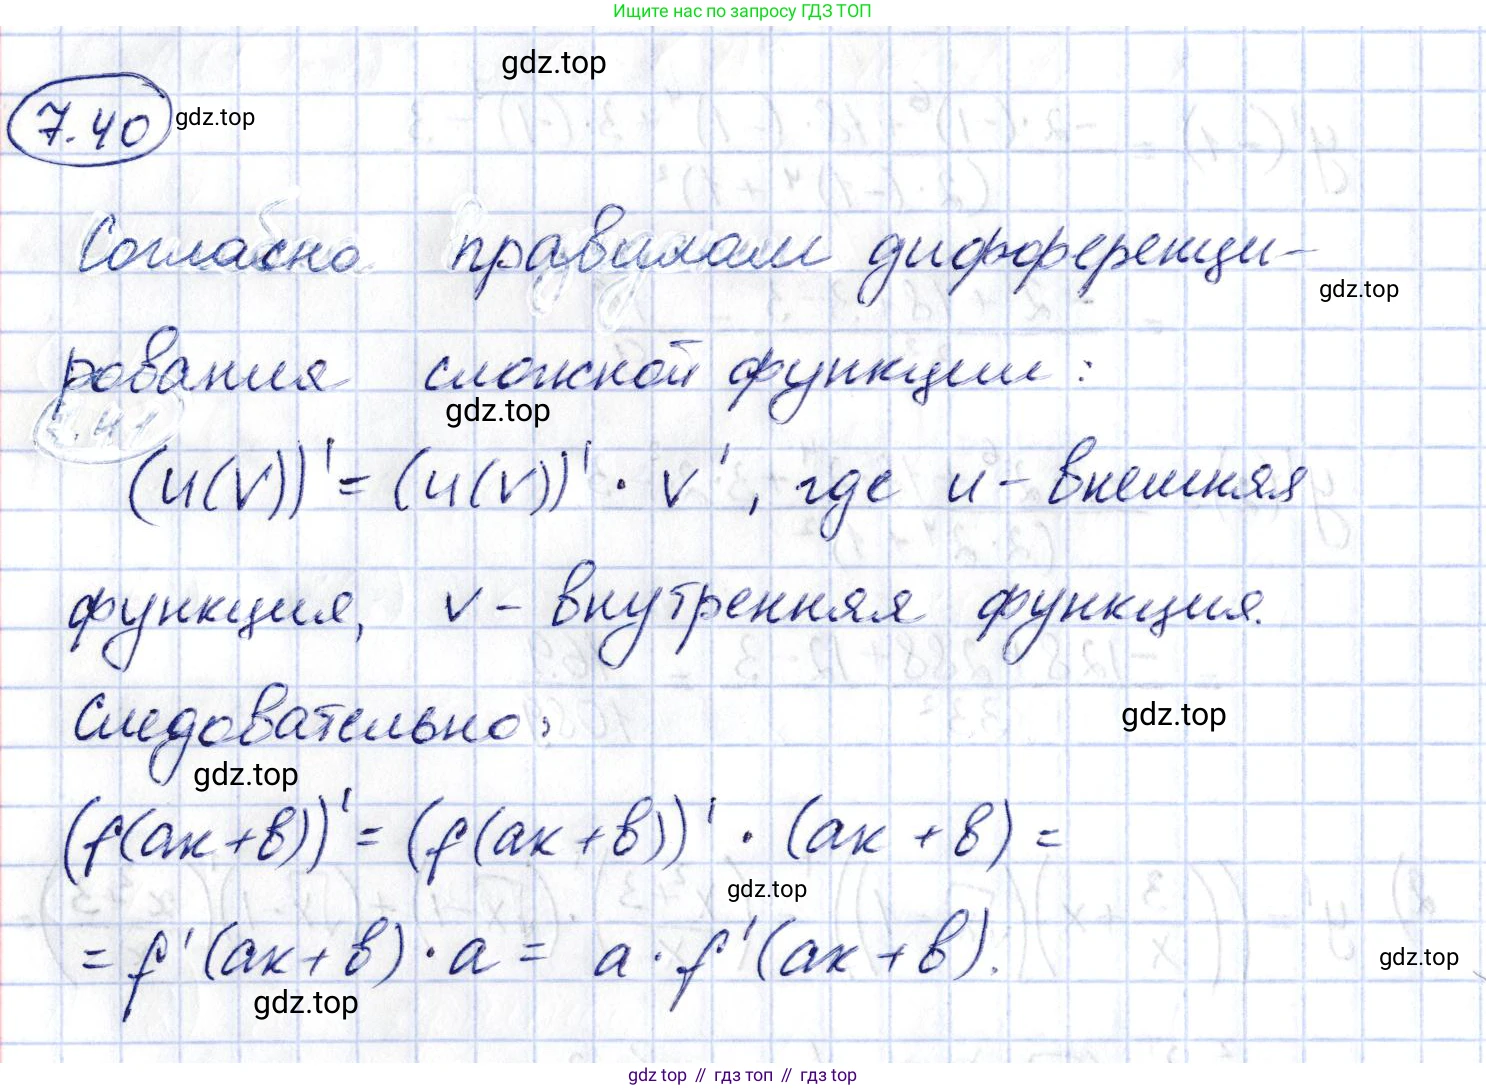 Ищите нас по запросу ГДЗ ТОП
gdz.top
7.40 gdz.top
Согласно правилам дифференци-
gdz.top
рования сложной функции:
gdz.top
7.41
(u(v))' = (u(v))' · v', где u - внешняя
функция, v - внутренняя функция.
gdz.top
Следовательно:
gdz.top
(f(ax+b))' = (f(ax+b))' · (ax+b) =
gdz.top
= f'(ax+b) · a = a · f'(ax+b).
gdz.top
gdz.top
gdz top // гдз топ // gdz top